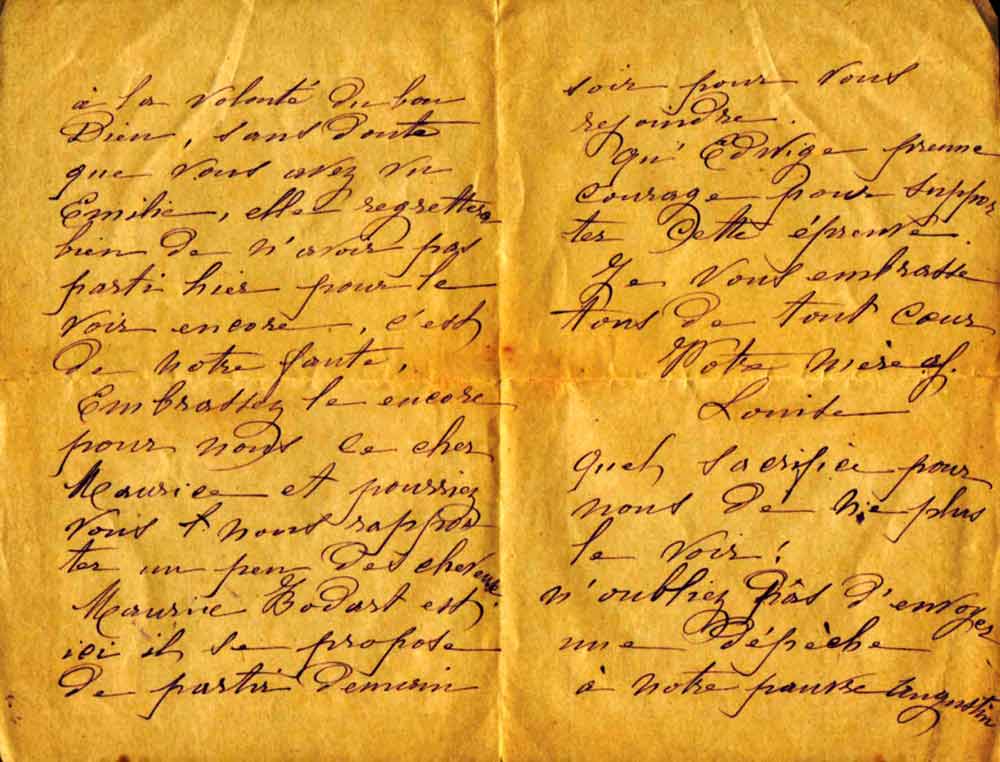 à la volonté du bon
Dien, sans doute
que vous avez vu
Emilie, elle regrettera
bien de n'avoir pas
parti hier pour le
voir encore, c'est
de notre faute,
Embrassez le encore
pour nous ce cher
Maurice et pourriez
vous nous rappor
ter un peu des cheveux.
Maurice Bodart est
ici il se propose
de partir demain
soir pour vous
rejoindre.
qu'Edwige prenne
courage pour suppor
ter cette épreuve.
Je vous embrasse
tous de tout cœur
Votre mère af.
Louise
quel sacrifice pour
nous de ne plus
le voir!
n'oubliez pas d'envoyer
une dépèche
à notre pauvre Augustin